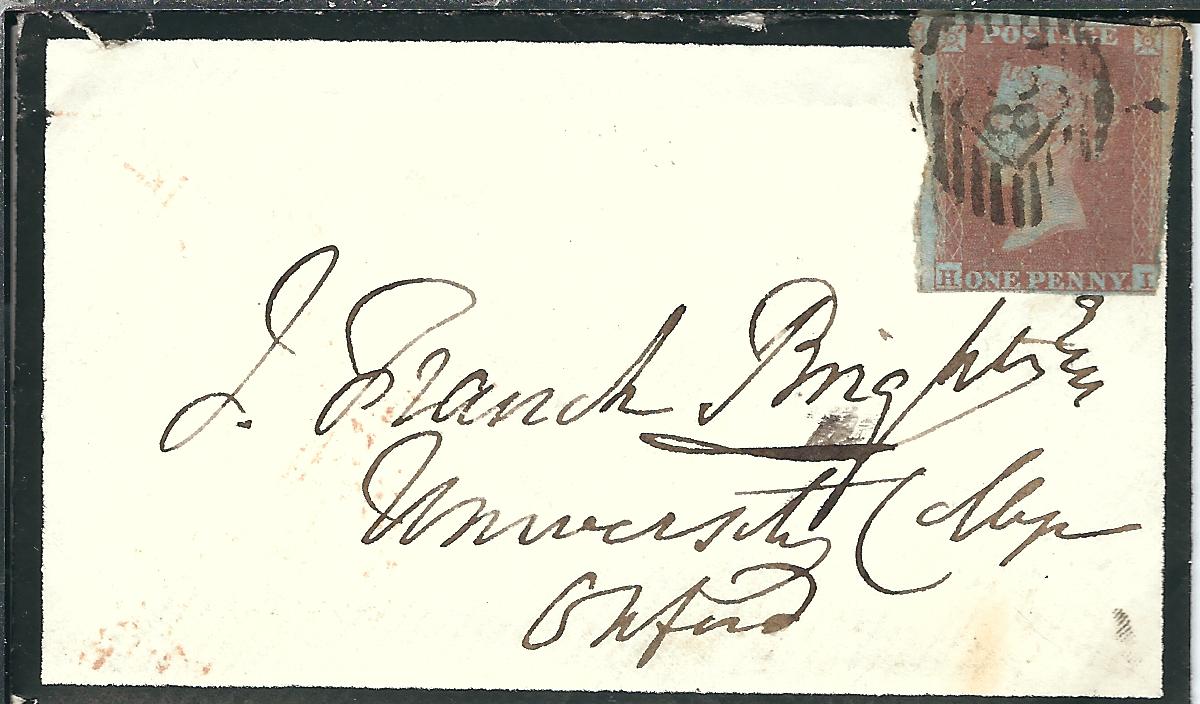 POSTAGE
H ONE PENNY I
J. Franck Bright Esq
University College
Oxford